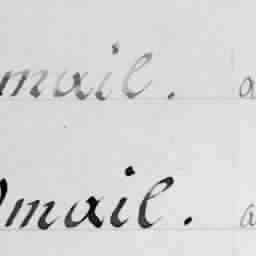 mail. a
mail. a